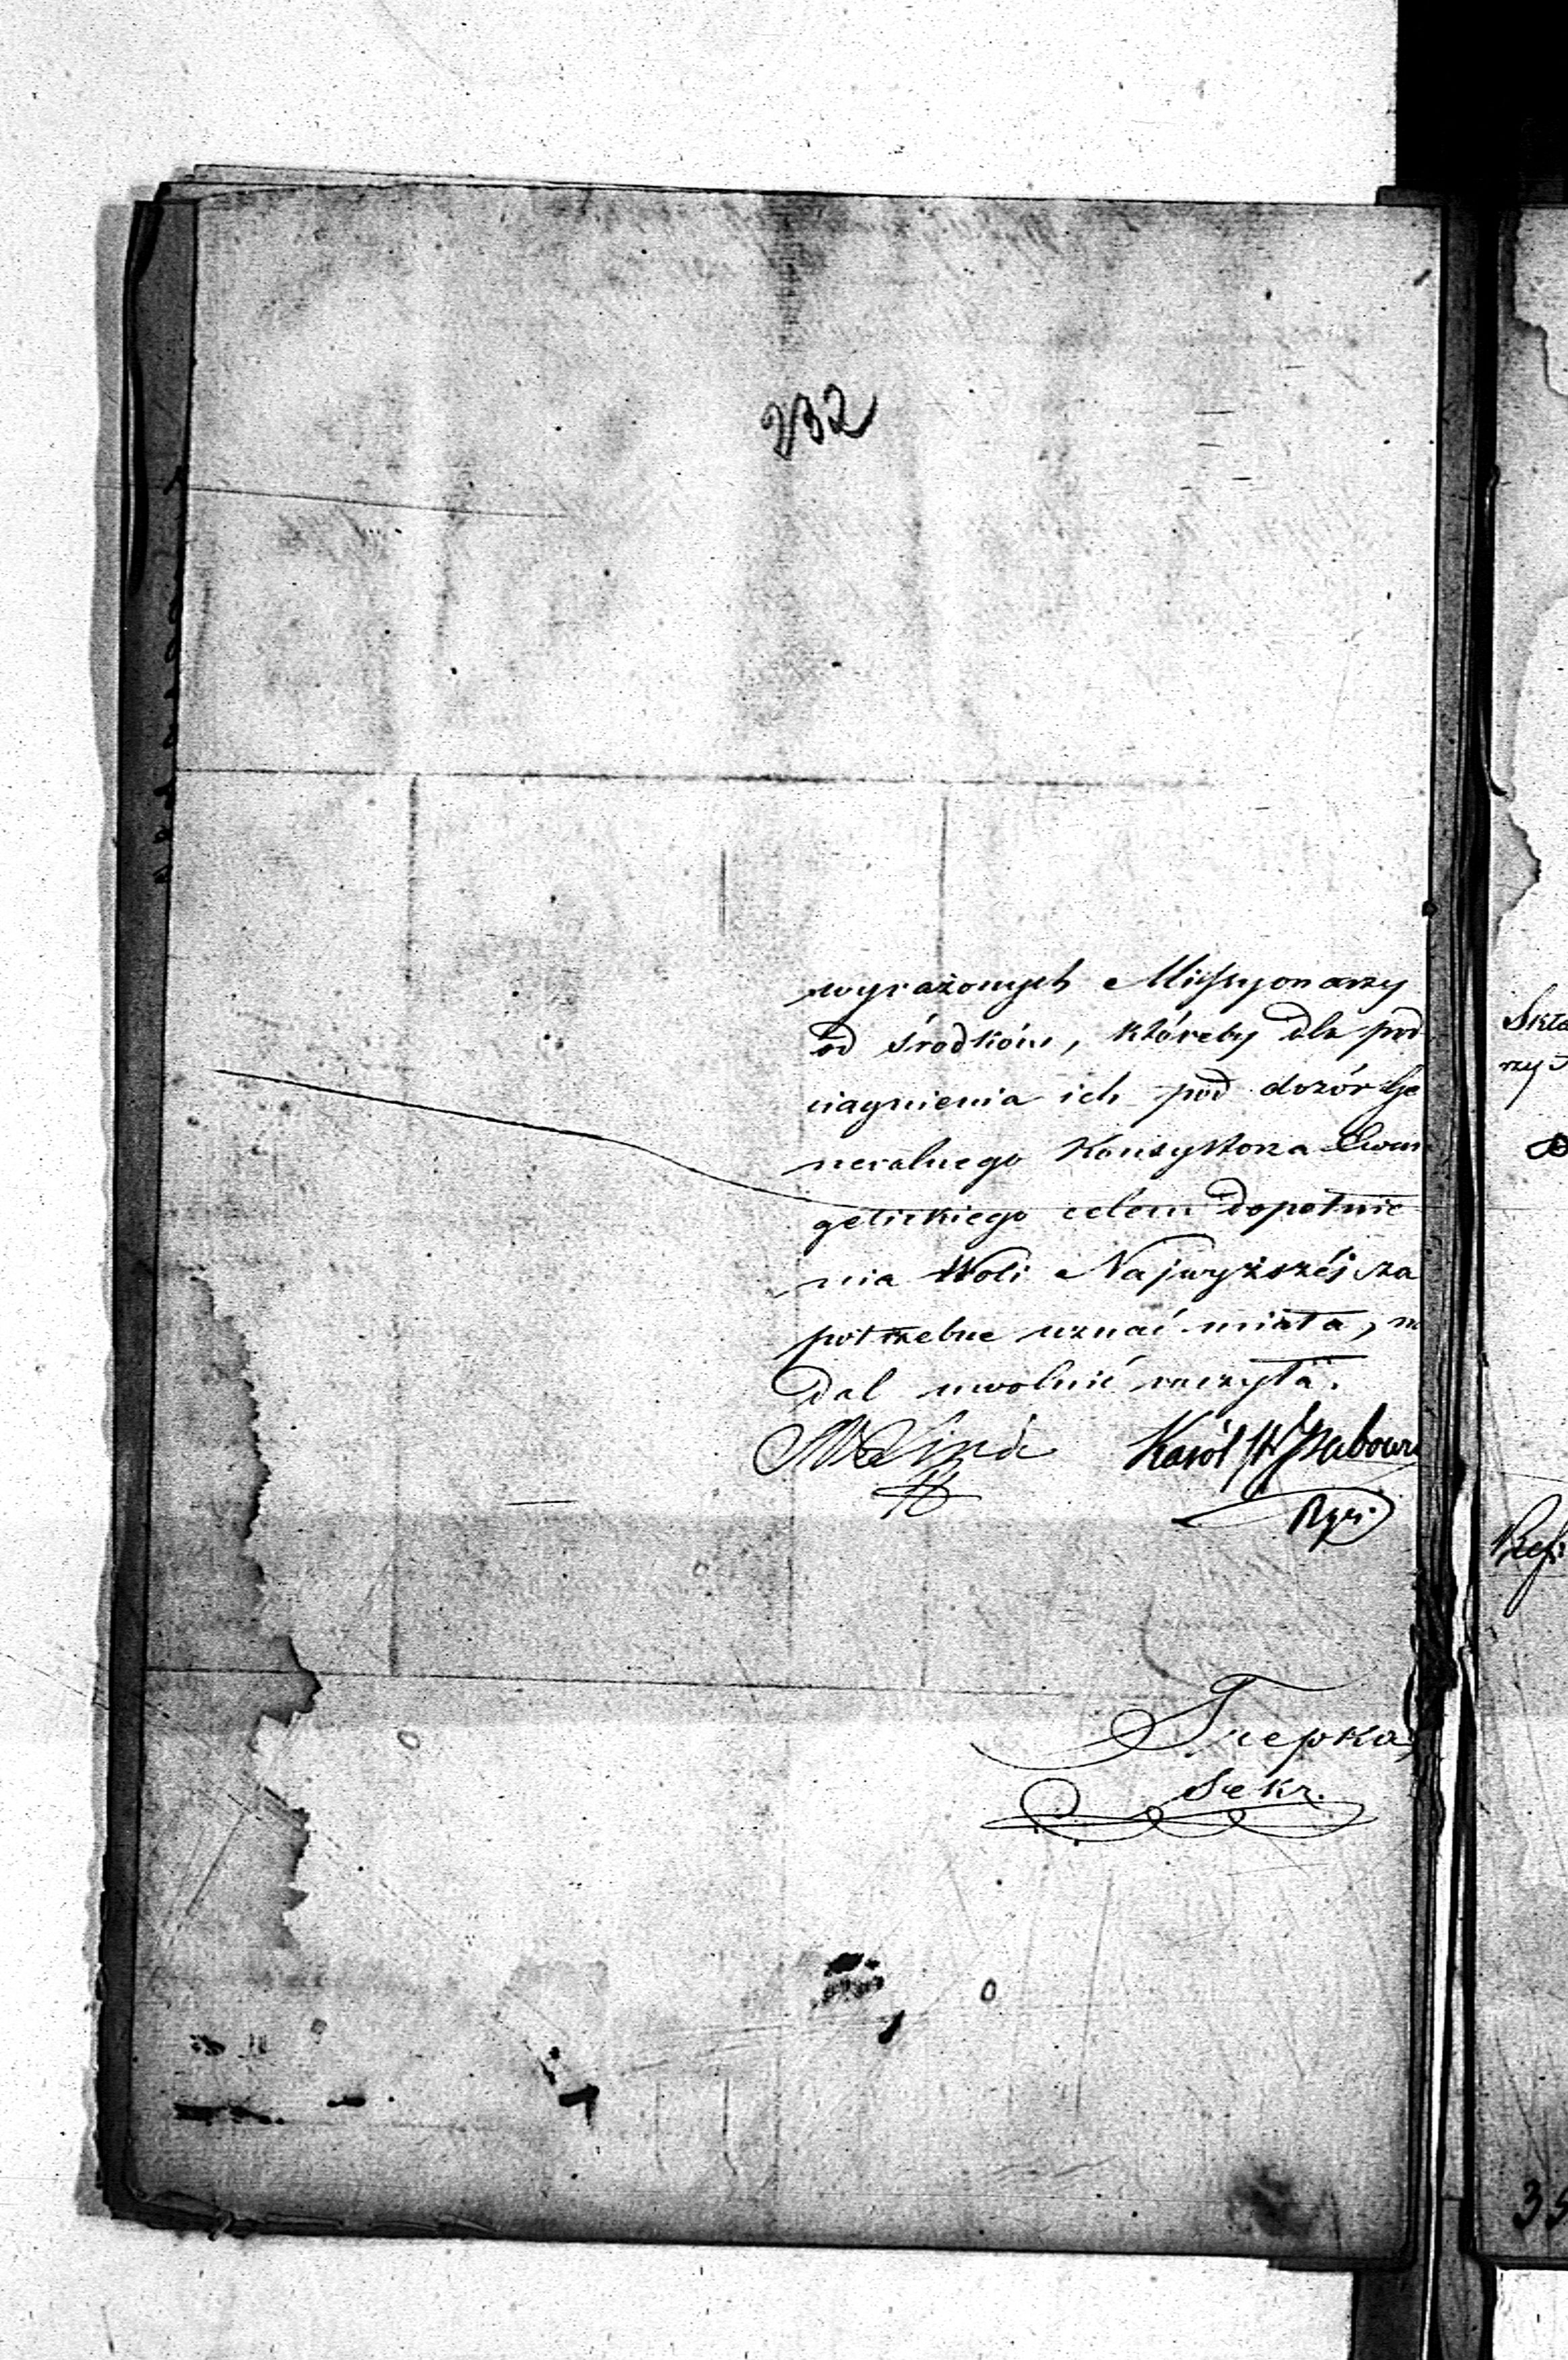 232
wyrażonych Missyonarzy
od środków, któreby dla pod
ciągnienia ich pod dozór Ge
neralnego Konsystorza Ewan
gelickiego celem dopełnie
nia Woli Najwyższéj za
potrzebne uznać miała, na
dal uwolnić raczyła.
Karól
Trepka
Sekr.